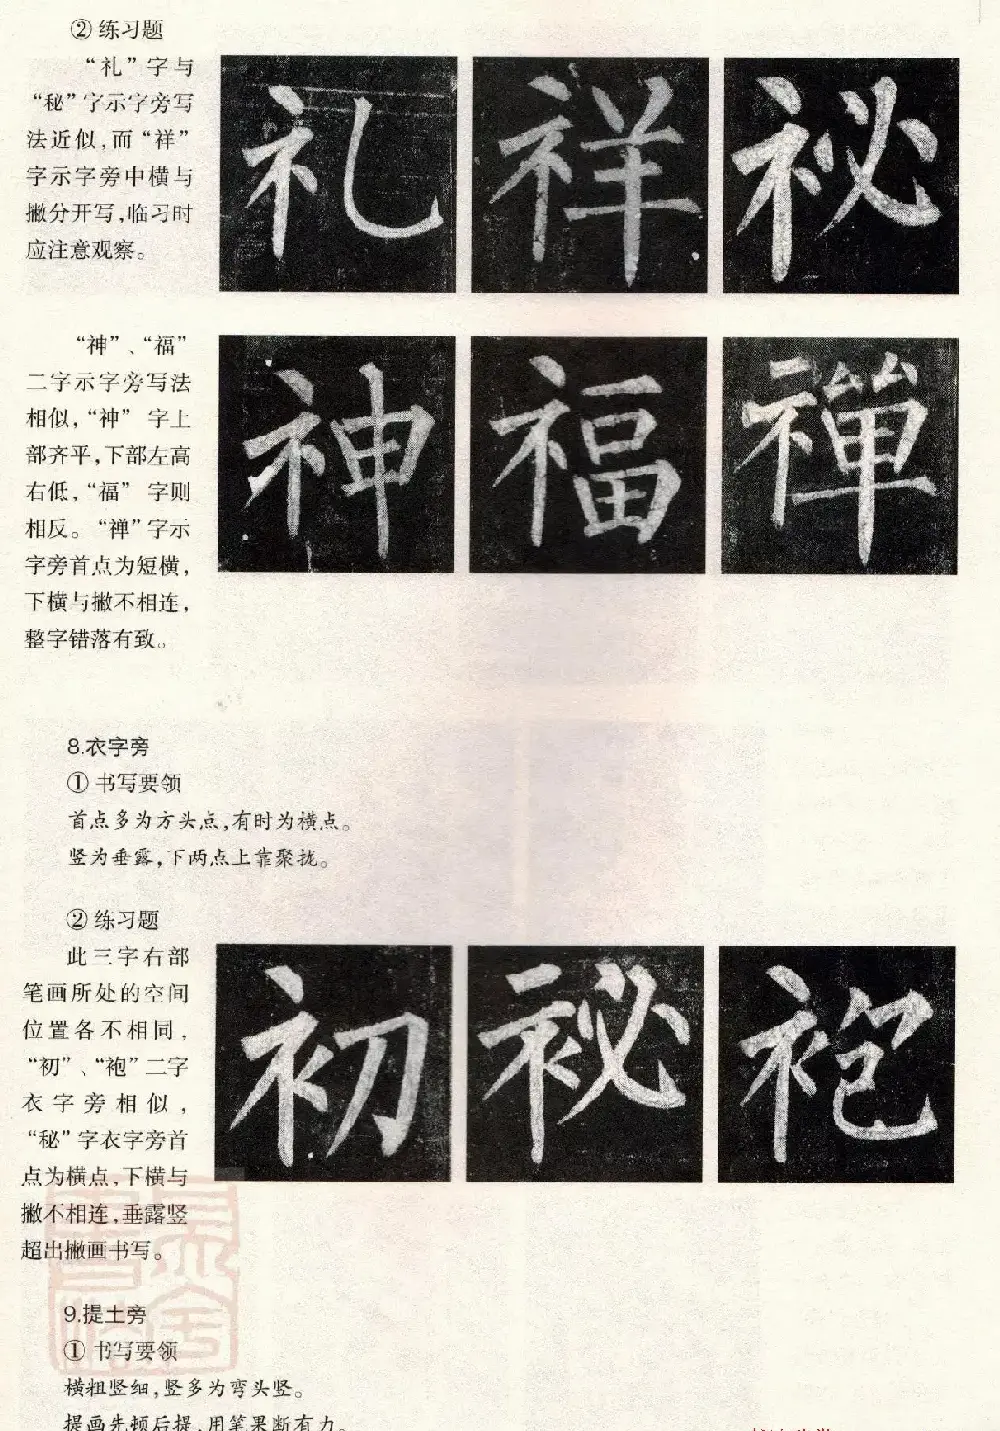 ② 练习题
“礼”字与
“秘”字示字旁写
法近似,而“祥”
字示字旁中横与
撇分开写,临习时
应注意观察。
礼 祥 祕
“神”、“福”
二字示字旁写法
相似,“神” 字上
部齐平,下部左高
右低,“福” 字则
相反。“禅”字示
字旁首点为短横,
下横与撇不相连,
整字错落有致。
神 福 禪
8.衣字旁
① 书写要领
首点多为方头点,有时为横点。
竖为垂露,下两点上靠聚拢。
② 练习题
此三字右部
笔画所处的空间
位置各不相同,
“初”、“袍”二字
衣字旁相似,
“秘”字衣字旁首
点为横点,下横与
撇不相连,垂露竖
超出撇画书写。
初 袐 袍
9.提土旁
① 书写要领
横粗竖细,竖多为弯头竖。
提画先顿后提,用笔果断有力。